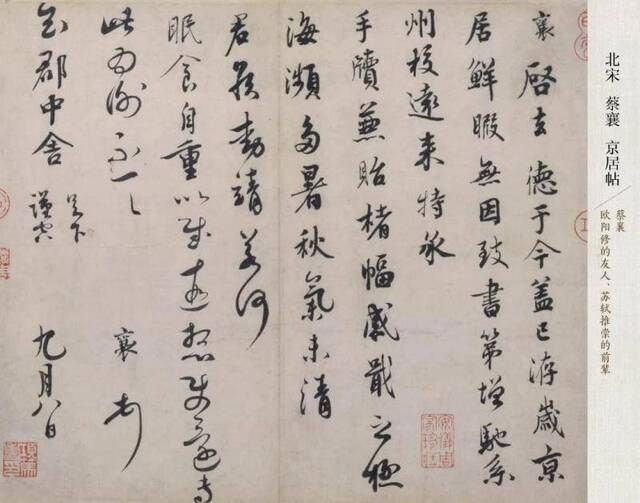 北宋 蔡襄 京居帖
蔡襄
欧阳修的友人、苏轼推崇的前辈
襄啓去德于今蓋已洊歲京
居鮮暇無因致書第增馳系
州校遠來特承
手牘兼貽楮幅感戢之極
海瀕多暑秋氣未清
君侯動靖若何
眠食自重以慰遠想使還專
此為謝不一一 襄頓首
知郡中舍足下 謹空 九月八日